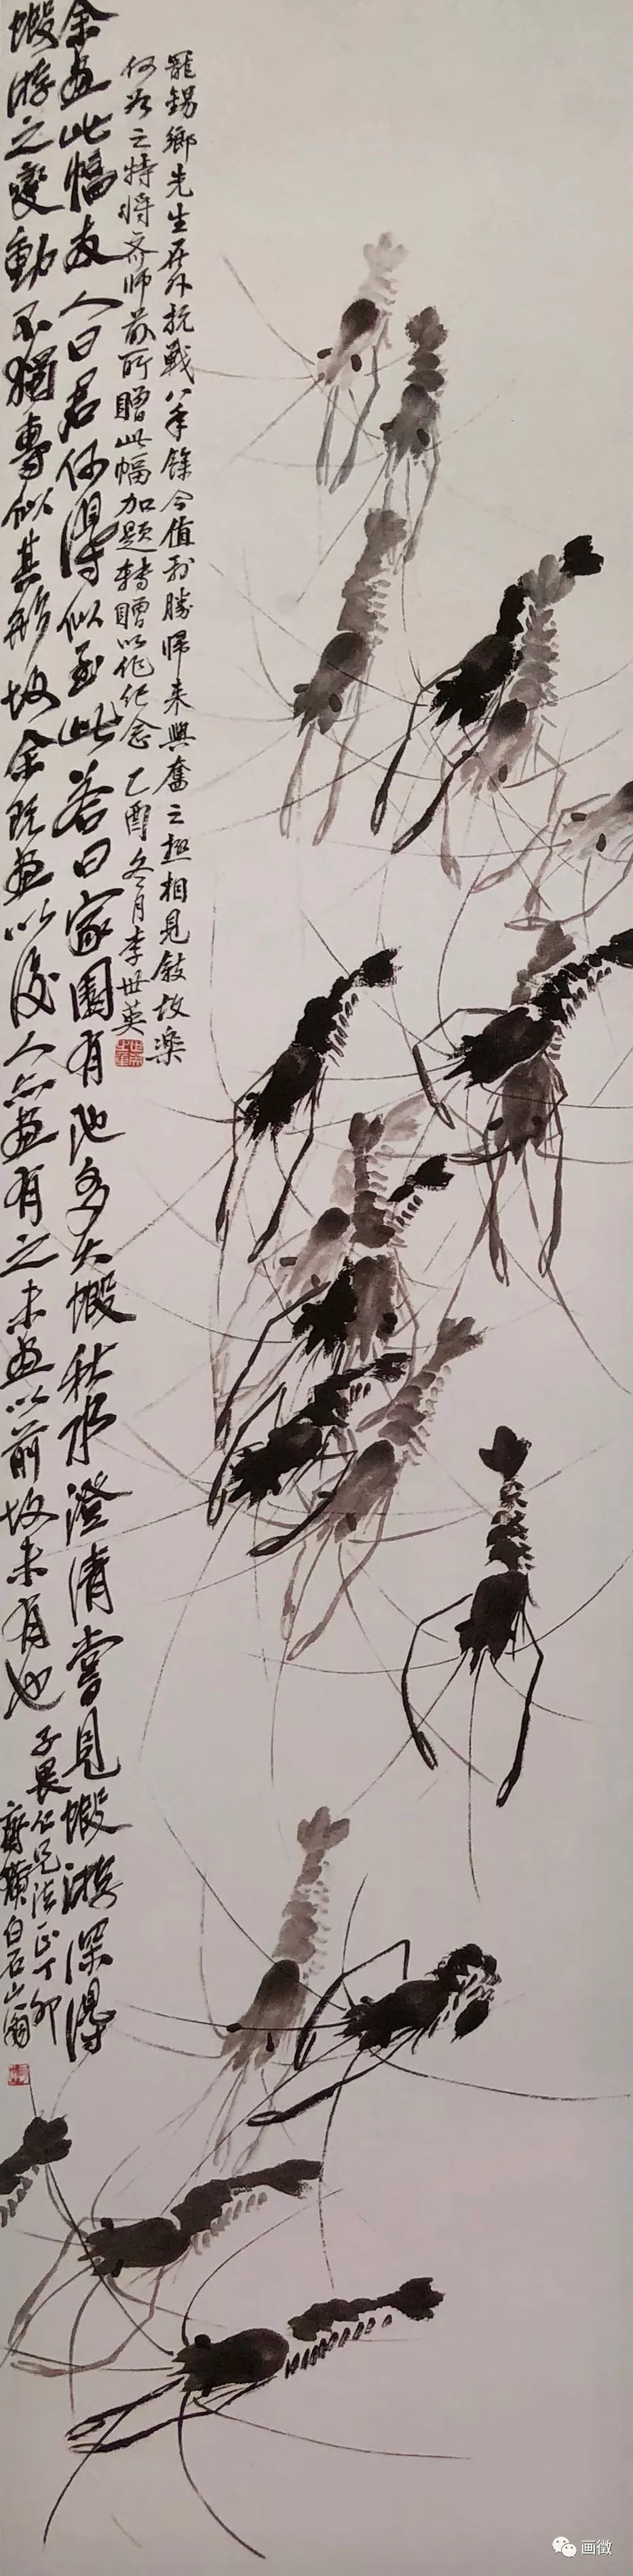 余画此幅友人曰君何得似至此答曰家園有池多大蝦秋水澄清嘗見蝦游深得
蝦游之變動不獨專似其形故余既画以後人亦画有之未画以前故未有也
子畏仁兄法正丁卯
齊璜白石山翁
龍錫鄉先生在外抗戰八年餘今值我勝歸来興奮之極相見敍故樂
何如之特將齐师前所贈此幅加题转贈以作纪念 乙酉冬月李世英
画徵